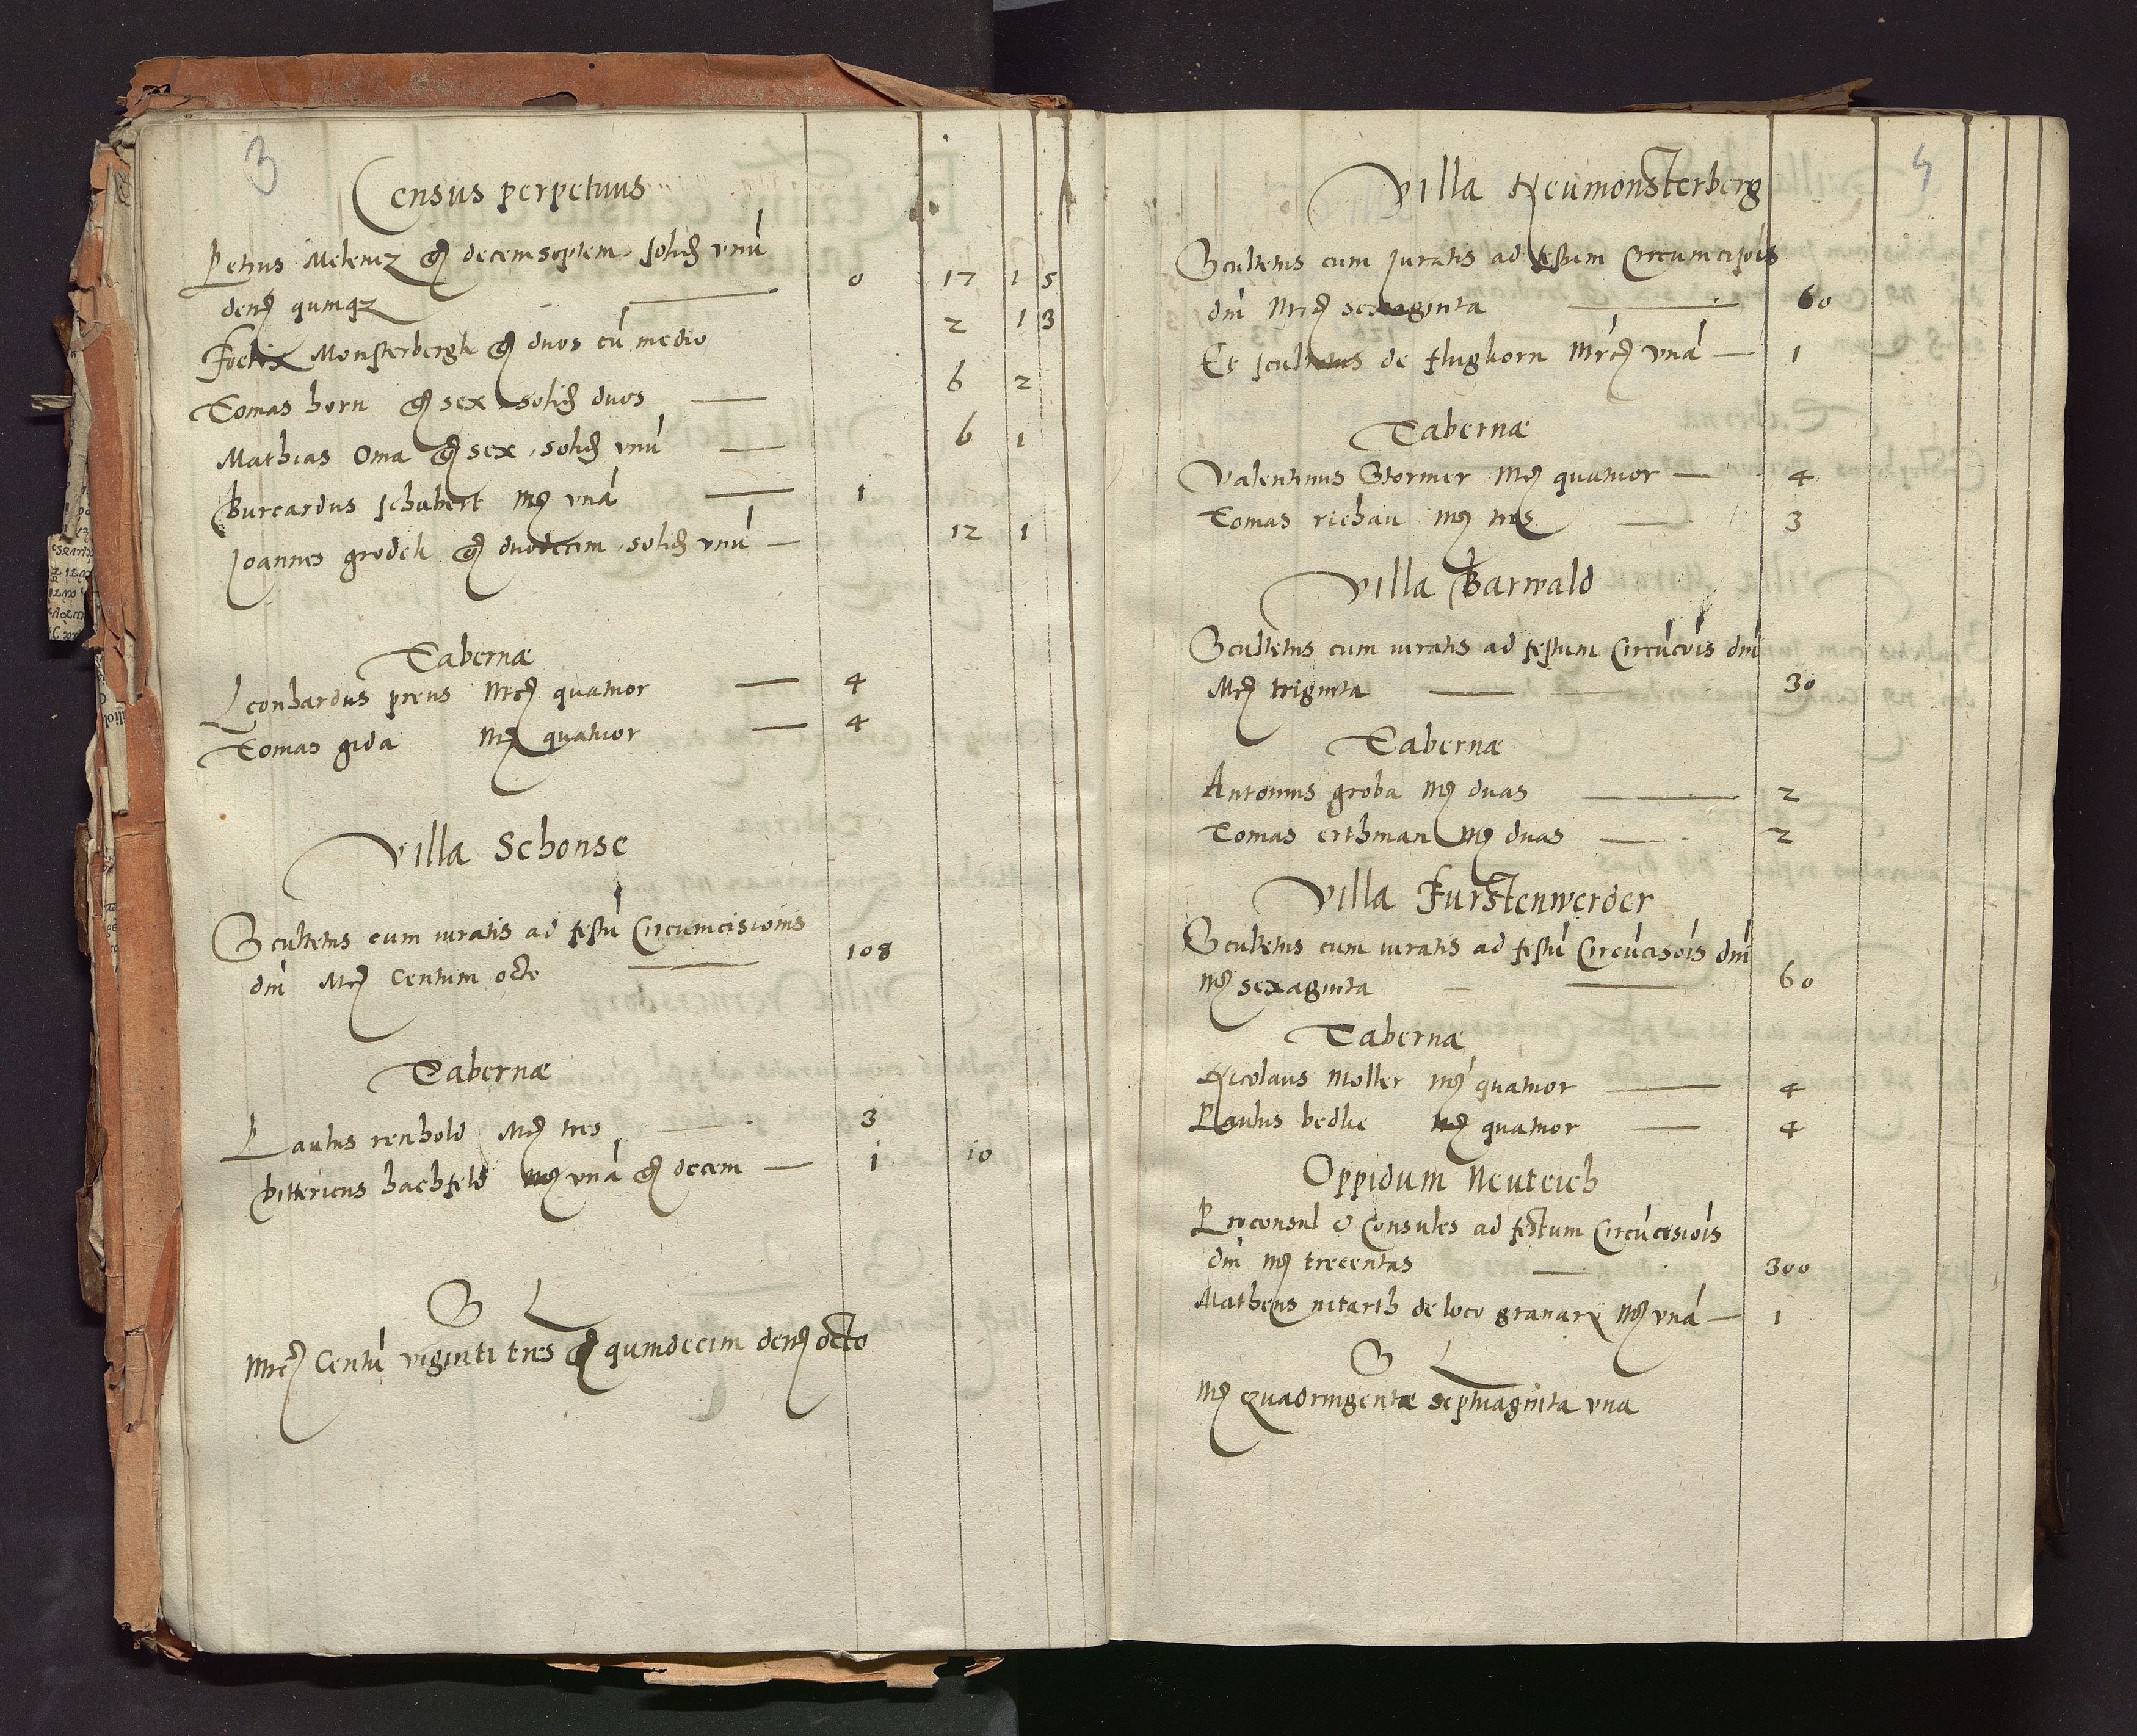 3
Census perpetuus
Petrus Melenz gͦ decemseptem, solid vnú
den qumqz 0 17 1 5
Foelix Monsterbergk gͦ duos cú medio 2 1 3
Tomas horn gͦ sex solid duos 6 2
Mathias Oma gͦ sex, solid vnú 6 1
Burcardus schubert Mͦ vná 1
Joannes grodek gͦ duodecim, solid vnú 12 1
Tabernæ
Leonhardus preus Mrͨ quatuor 4
Tomas gida Mͦ quatuor 4
Villa Schonse
Scultetus cum iuratis ad festú Circumcisionis
dni Mrͨ Centum octo 108
Tabernæ
Paulus renhold Mrͨ tres 3
Dittericus hachfeld Mͦ vná gͦ decem 1 10
S L
Mrͨ Centú viginti tres gͦ qumdecim den octo
4
Villa Neumonsterberg
Scultetus cum Juratis ad festum Circumcisiois
dni Mrͨ sexaginta 60
Et scultetus de flughorn Mrͨ vná 1
Tabernæ
Valentinus Stormer Mͦ quatuor 4
Tomas richau Mͦ tres 3
Villa Barwald
Scultetus cum iuratis ad festum Circúciois dni
Mrͨ triginta 30
Tabernæ
Antonius groba Mͦ duas 2
Tomas erthman Mͦ duas 2
Villa Furstenwerder
Scultetus cum iuratis ad festú Circúcisois dni
Mͦ sexaginta 60
Tabernæ
Nicolaus Moller Mͦ quatuor 4
Paulus bedke Mͦ quatuor 4
Oppidum Neuteich
Proconsul & Consules ad festum Circúcisiois
dni Mͦ trecentas 300
Matheus nitarth de loco granarÿ Mͦ vná 1
S L
Mͦ Quadringentæ septuaginta vna